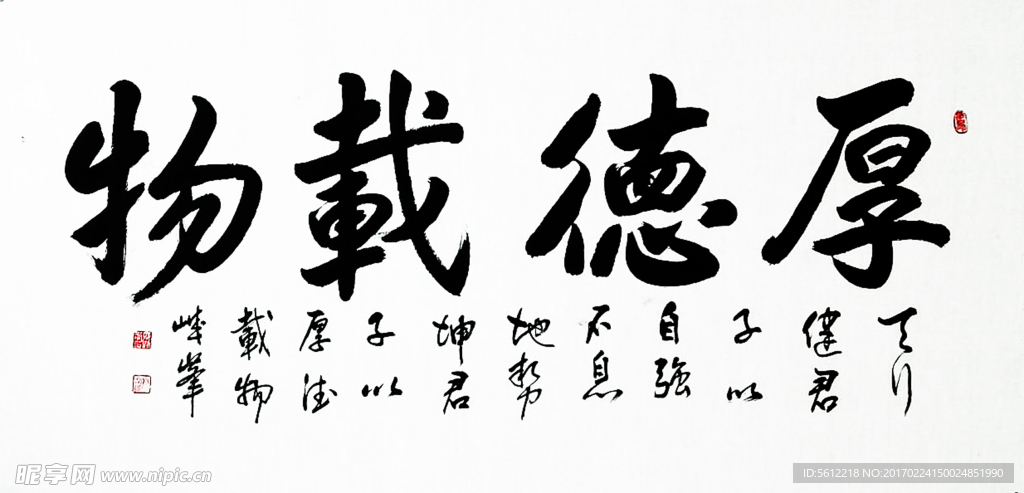 厚德載物
天行
健君
子以
自強
不息
地勢
坤君
子以
厚德
載物
昵享网 www.nipic.cn
ID:5612218 NO:20170224150024851990